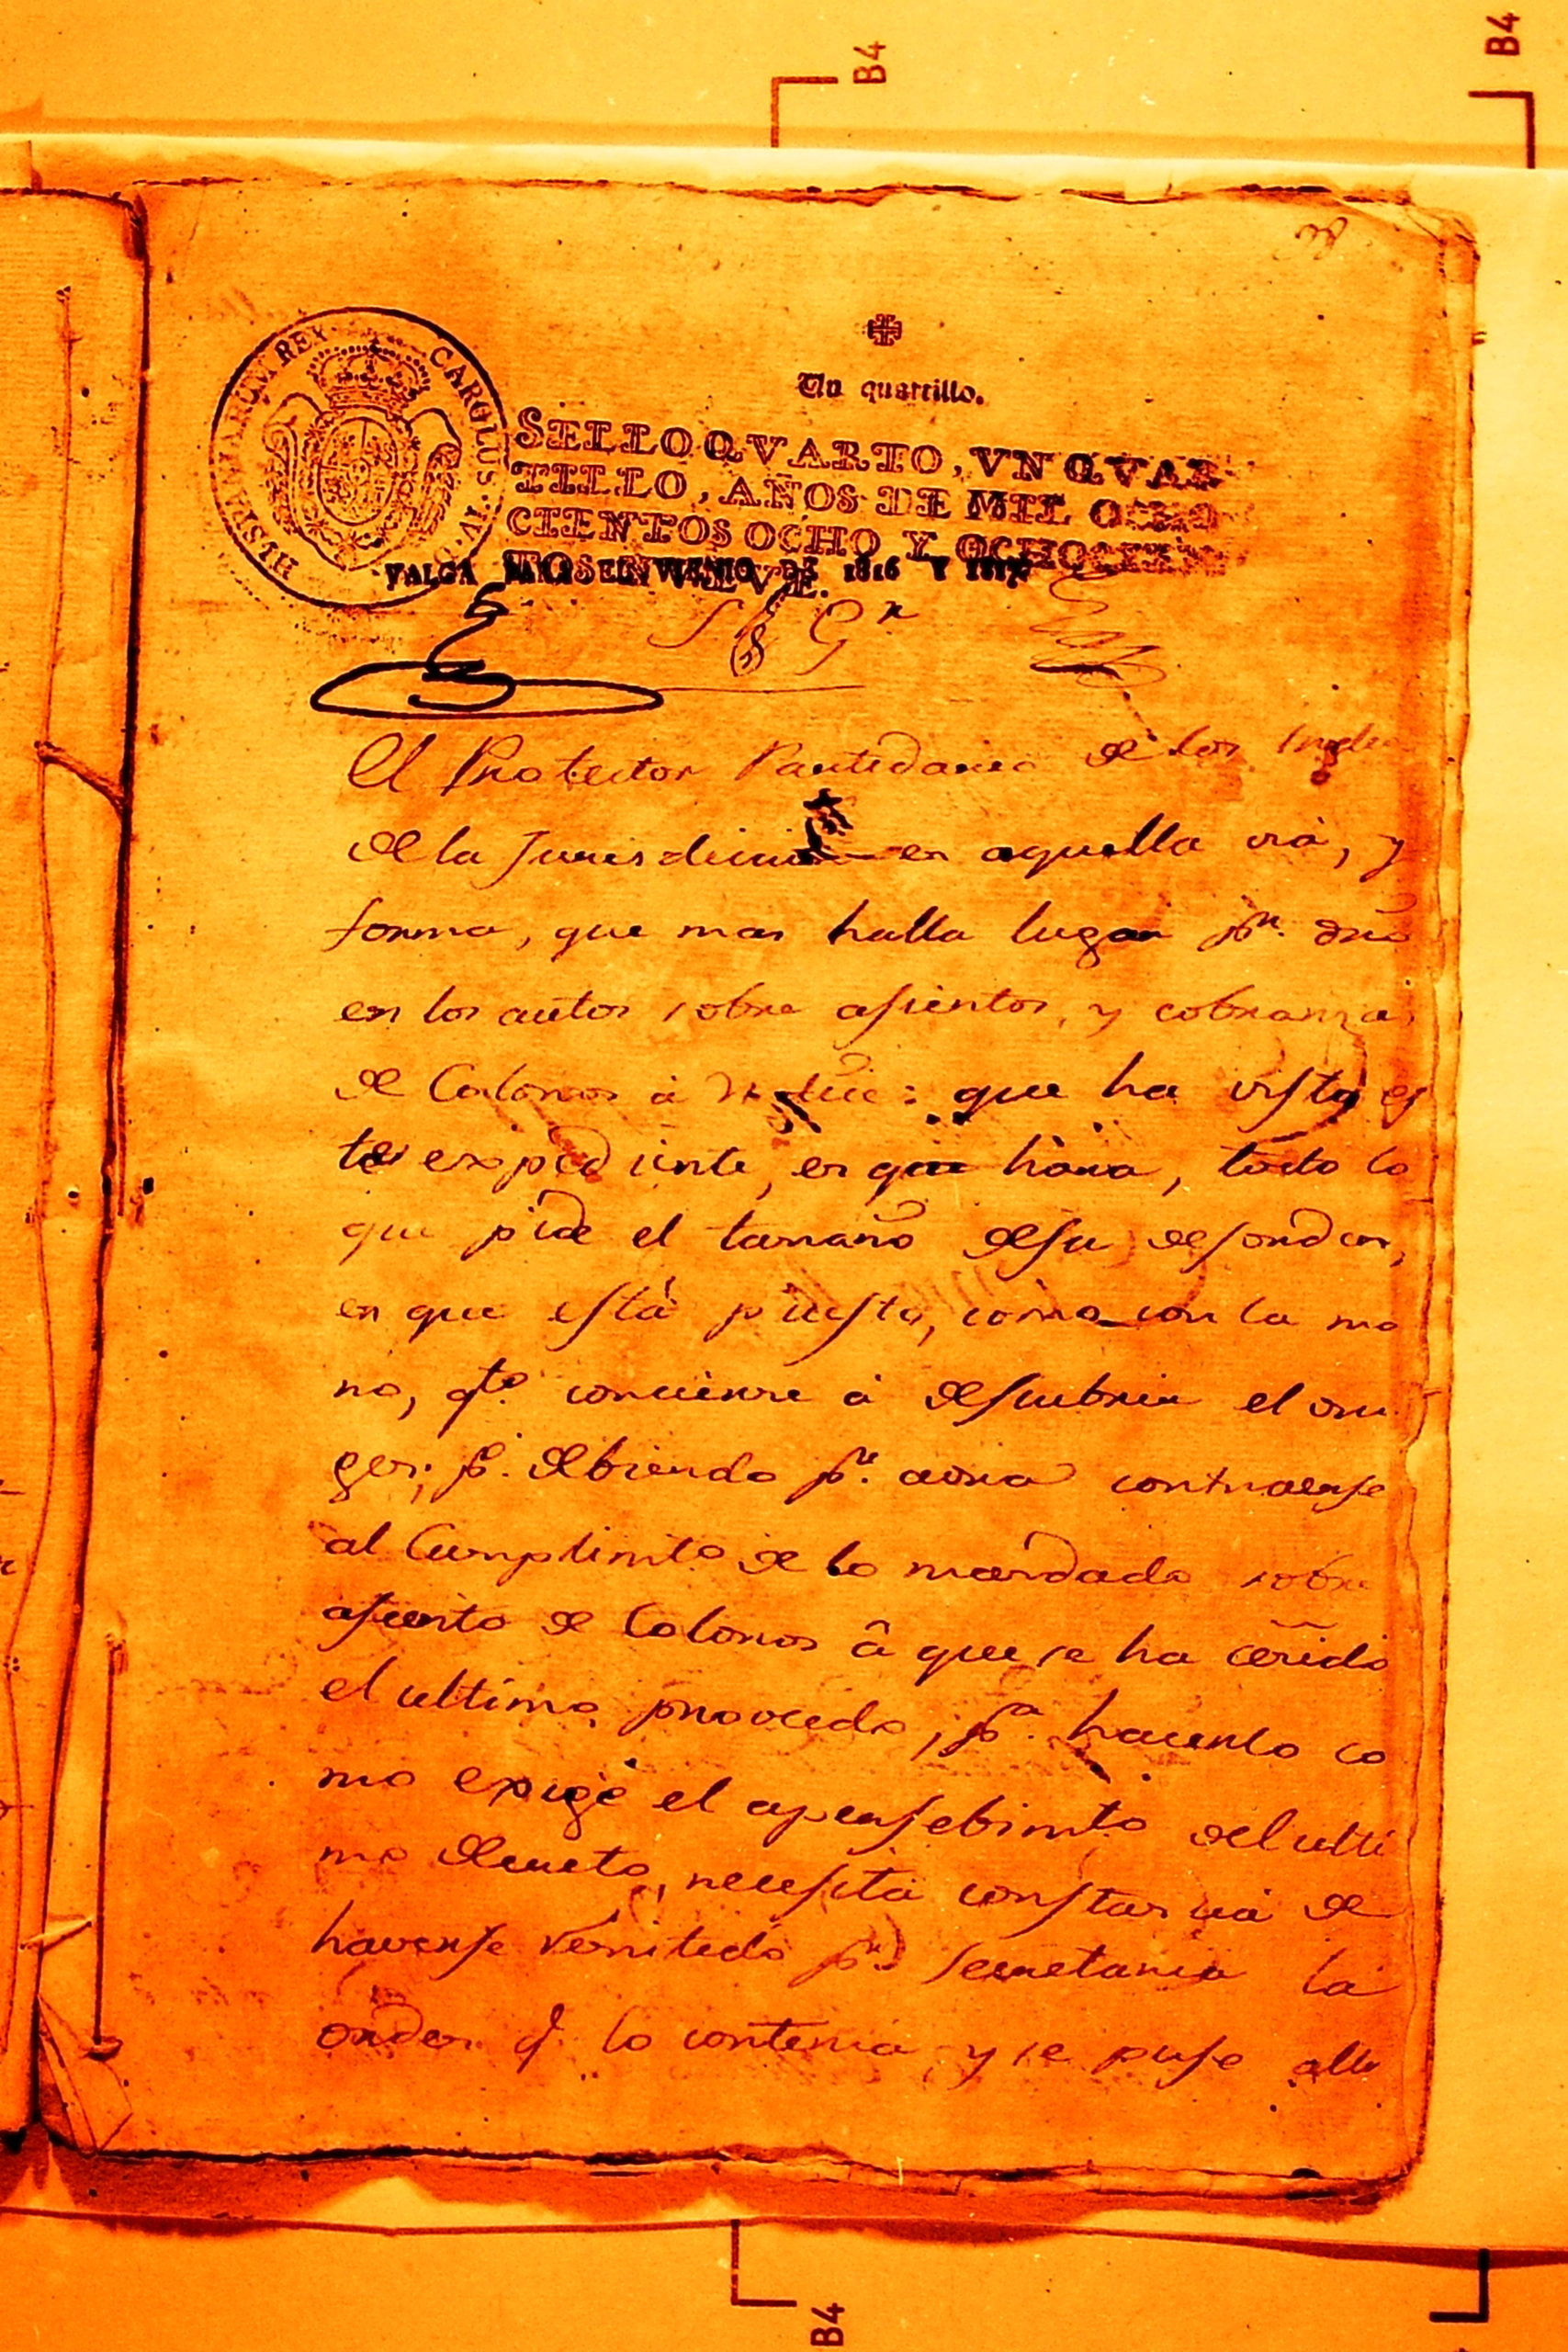 B4
B4
HISPANIARUM REX CAROLUS IV. D. G.
Un quartillo.
SELLO QVARTO, VN QVAR
TILLO, AÑOS DE MIL OCHO
CIENTOS OCHO Y OCHOCIEN
TOS NVEVE.
VALGA PARA EL VIENIO DE 1816 Y 1817
S G
El Protector Partidario de los Indi
de la Jurisdicion en aquella via, y
forma, que mas halla lugar pr. dro
en los autos sobre asientos, y cobranzas
de Colonos a que ha visto es
te expediente, en que todo lo
que pide el tamaño desu desorden,
en que está puesto, como con la ma
no, qto. conviene a descubrir el ori
gen; p. debiendo pr. aora contraerse
al Cumplimto de lo mandado sobre
asiento de Colonos â que se ha ceñido
el ultimo proveedo, pa. hacerlo co
mo exige el apersebimto del ulti
mo decreto, necesita constancia de
haverse remitido pr. secretaria la
orden q lo contenia, y se puso alli
B4